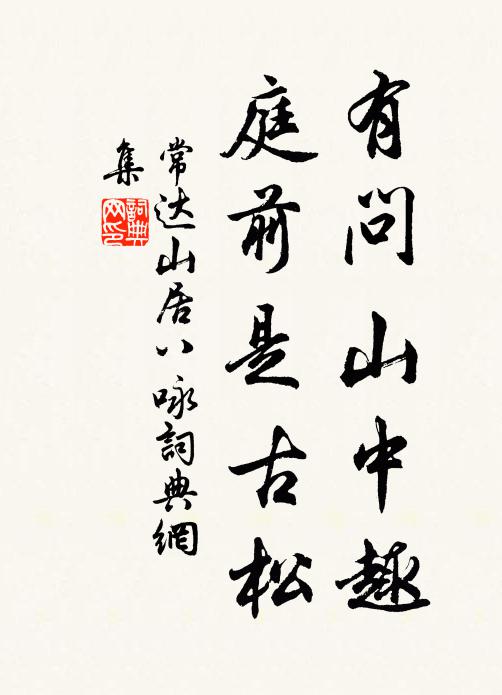 有問山中趣
庭前是古松
常达山居八咏詞典網
集
詞典
网印